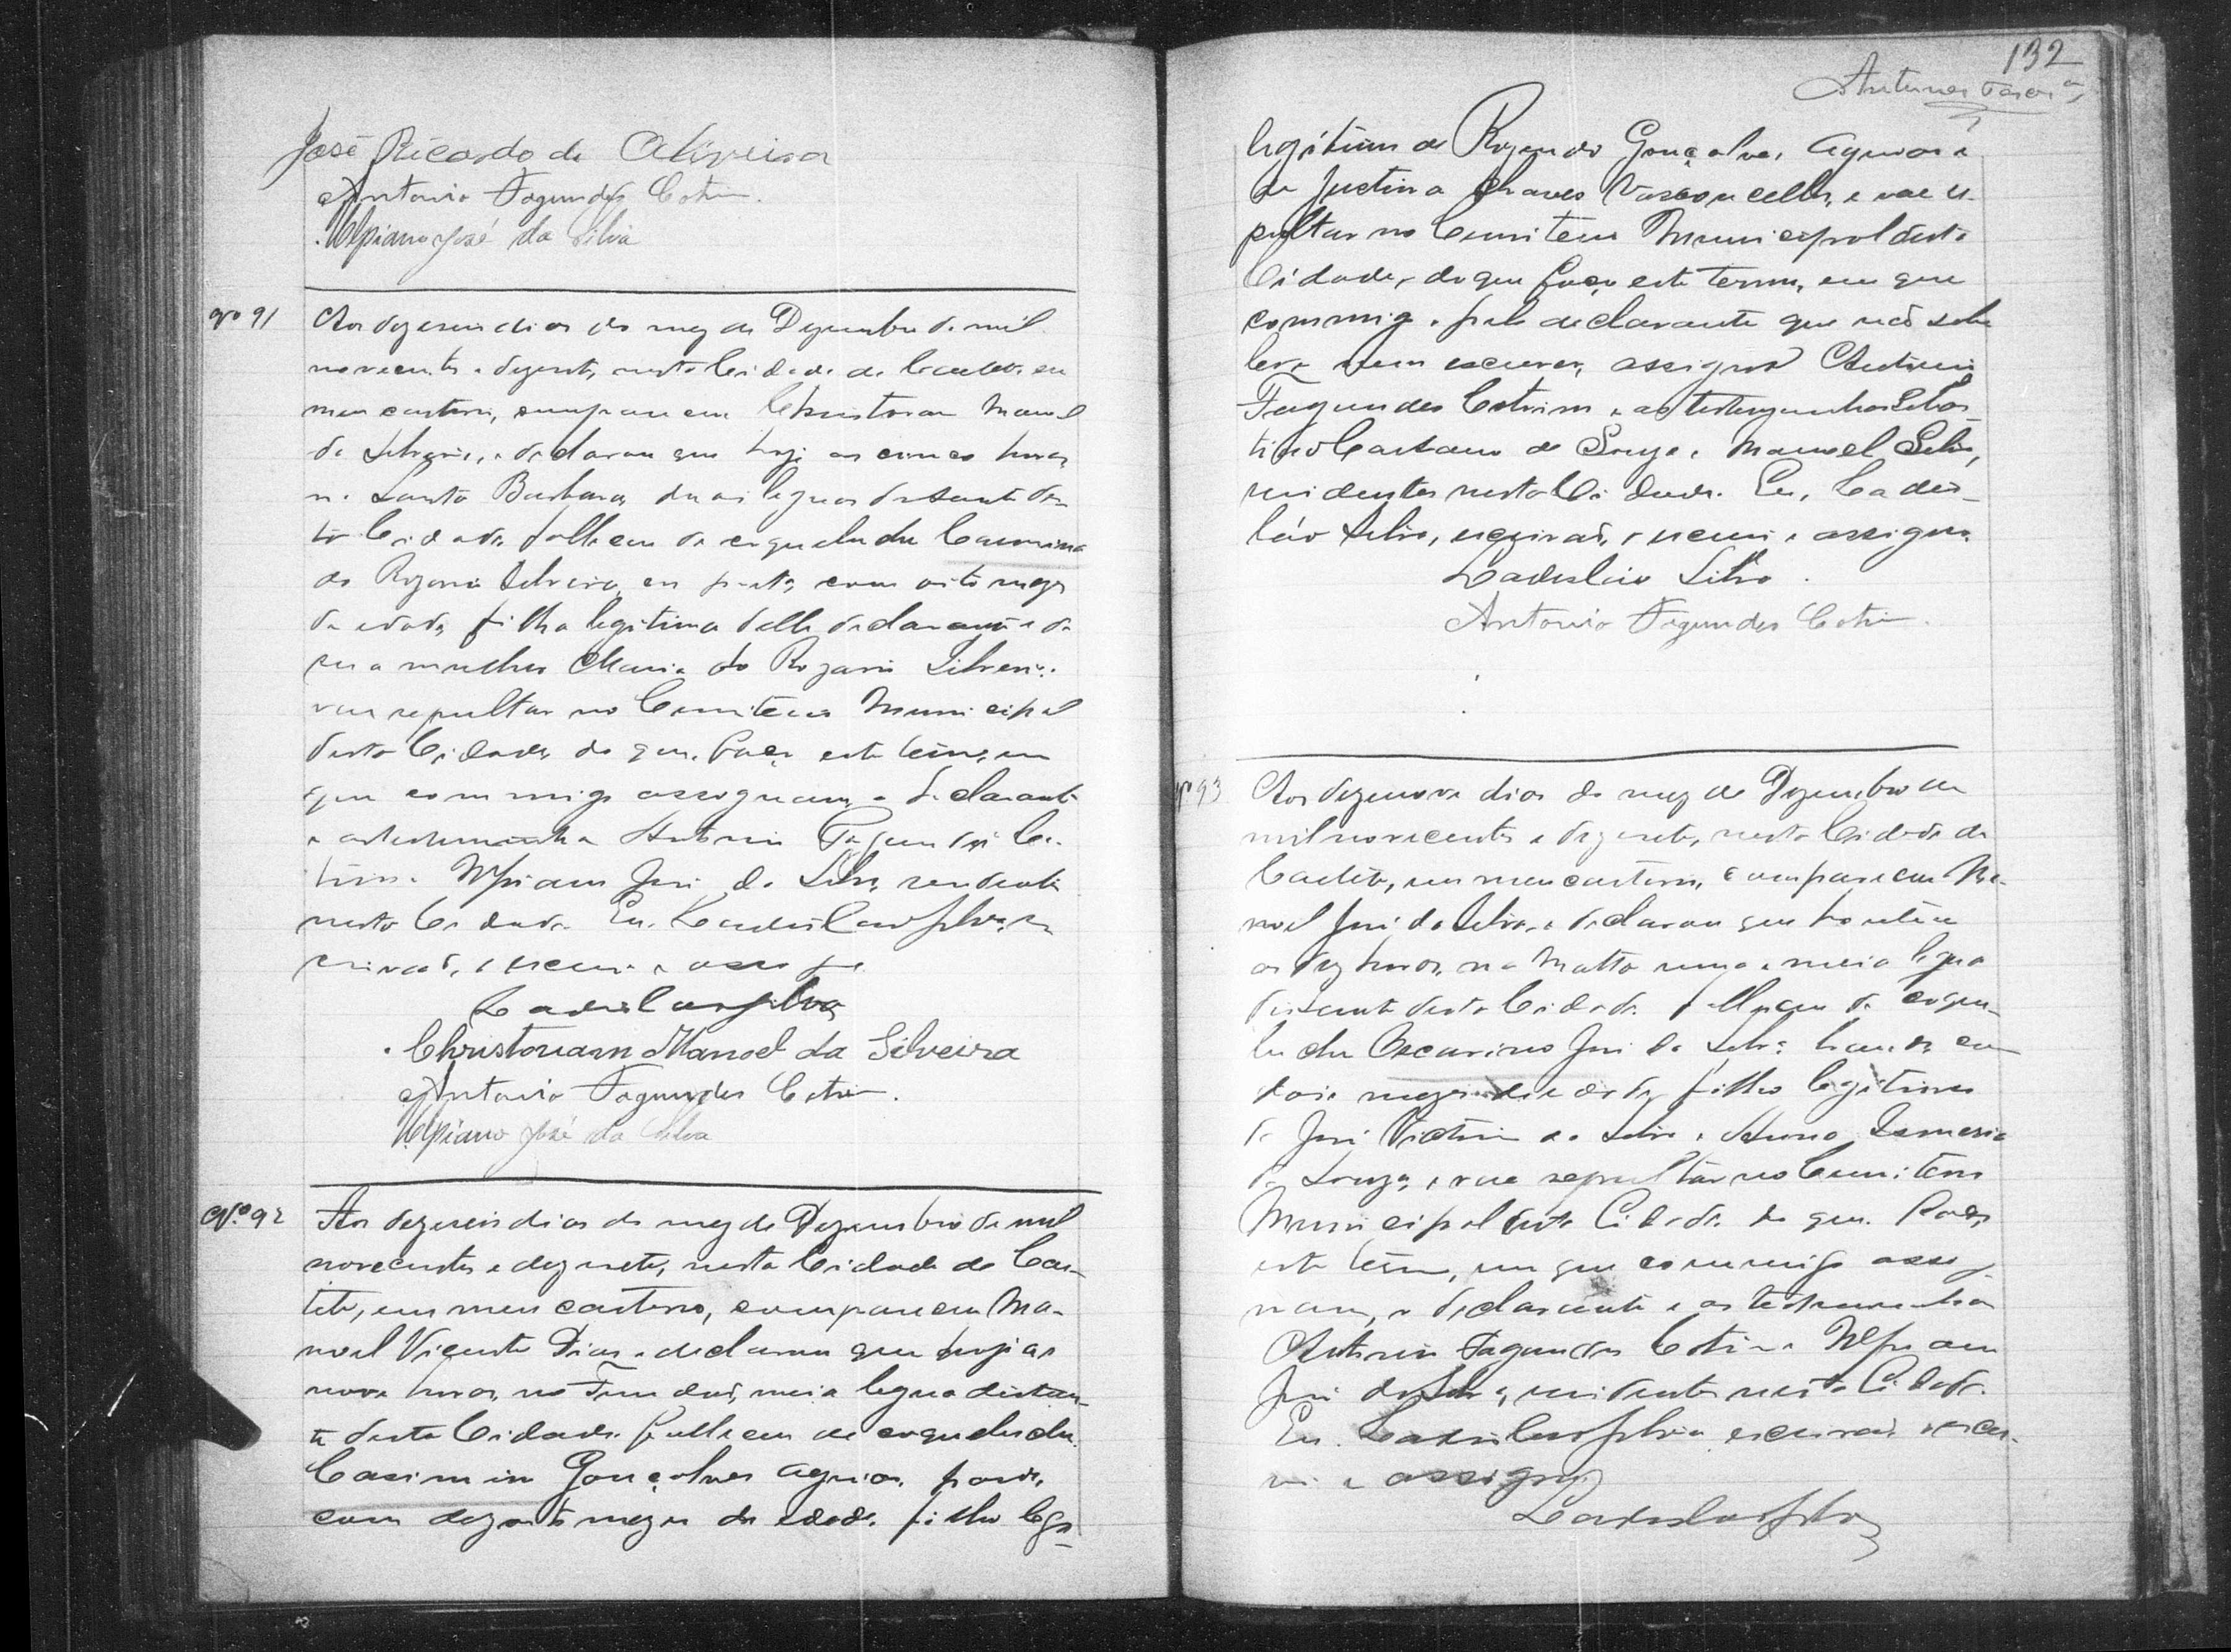 José Ricardo de Oliveira
Antonio Fagundes Cotrim.
Ulpiano José da Silva
Nº 91
Aos dezeseis dias do mez de Dezembro de mil
novecentos e dezesete, nesta Cidade de Caeteté, em
meu cartorio, compareceu Christovam Manoel
da Silveira, e declarou que hoje as cinco horas
na Santa Barbara, duas leguas distante des-
ta Cidade, falleceu de coqueluche Carmina
do Rozario Silveira, preta, com oito mezes
de edade, filha legitima delle declarante e de
sua mulher Maria do Rozario Silveira.
vae sepultar no Cemiterio Municipal
desta Cidade, do que, faço este termo, em
que commigo assignam, o declarante
e as testemunhas Antonio Fagundes Co-
trim e Ulpiano José da Silva, residentes
nesta Cidade. Eu, Ladislau Silva, es-
crivão, o escrevi e assigno
Ladislau Silva
Christovam Manoel da Silveira
Antonio Fagundes Cotrim.
Ulpiano José da Silva
Nº 92
Aos dezeseis dias do mez de Dezembro de mil
novecentos e dezesete, nesta Cidade de Cae-
teté, em meu cartorio, compareceu Ma-
noel Vicente Dias e declarou que hoje as
nove horas, no Fundão, meia legua distan-
te desta Cidade falleceu de coqueluche
Casimiro Gonçalves Aguiar, pardo,
com dezoito mezes de edade, filho legi-
132
Antunes
legitimo de Rozendo Gonçalves Aguiar e
de Justina Chaves Vasconcellos, e vae se-
pultar no Cemiterio Municipal desta
Cidade, do que faço este termo, em que
commigo e pelo declarante que não sabe
ler e nem escrever, assigna Antonio
Fagundes Cotrim e as testemunhas Sebas-
tião Caetano de Souza e Manoel Silva,
residentes nesta Cidade. Eu, Ladis-
láo Silva, escrivão, o escrevi e assigno.
Ladisláo Silva.
Antonio Fagundes Cotrim.
Nº 93
Aos dezenove dias do mez de Dezembro de
mil novecentos e dezesete, nesta Cidade de
Caeteté, em meu cartorio, compareceu Ma-
noel José da Silva, e declarou que hontem
as dez horas, na Matta uma e meia legua
distante desta Cidade falleceu de coque-
luche Oscarino José da Silva, branco, com
dois mezes de edade, filho legitimo
de José Victorino da Silva e Anna Izmeria
de Souza, e vae sepultar no Cemiterio
Municipal desta Cidade, do que, faço
este termo, em que commigo assig-
nam, o declarante e as testemunhas
Antonio Fagundes Cotrim e Ulpiano
José da Silva, residentes nesta Cidade.
Eu, Ladislau Silva escrivão o escre-
vi e assigno
Ladislau Silva